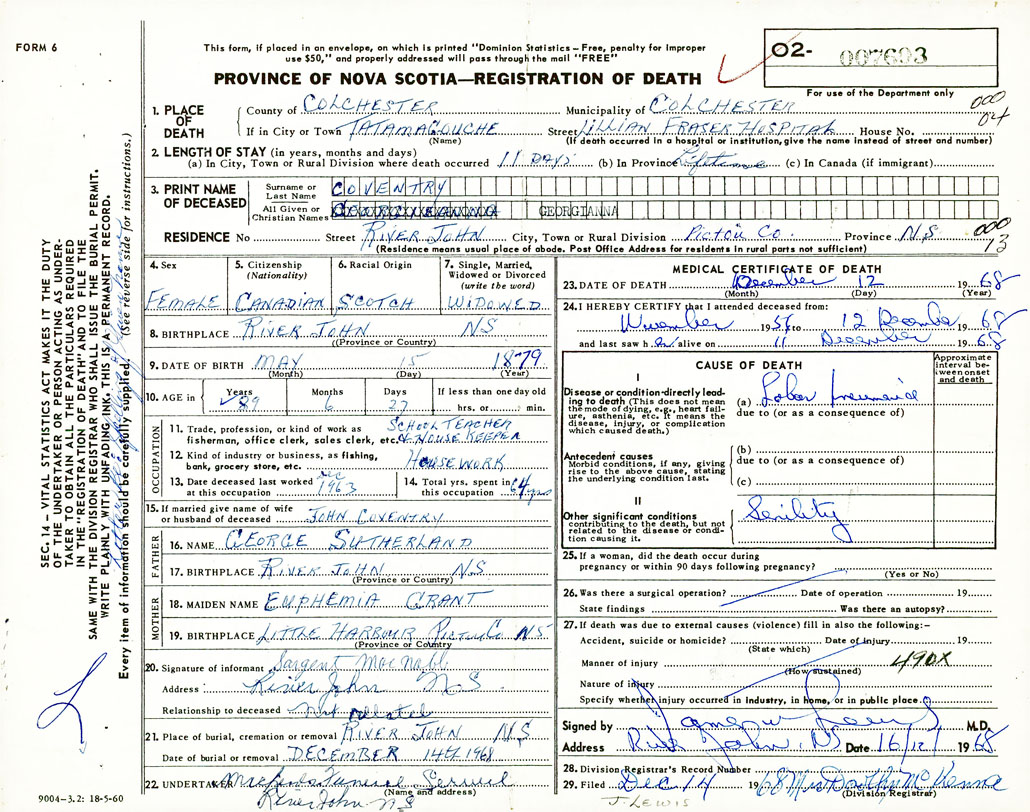 FORM 6
This form, if placed in an envelope, on which is printed "Dominion Statistics – Free, penalty for improper
use $50," and properly addressed will pass through the mail "FREE"
PROVINCE OF NOVA SCOTIA—REGISTRATION OF DEATH
02- 007603
For use of the Department only
1. PLACE OF DEATH
County of COLCHESTER Municipality of COLCHESTER 000
04
If in City or Town TATAMAGOUCHE Street LILLIAN FRASER HOSPITAL House No.
(Name) (If death occurred in a hospital or institution, give the name instead of street and number)
2. LENGTH OF STAY (in years, months and days)
(a) In City, Town or Rural Division where death occurred 11 DAYS (b) In Province Lifetime (c) In Canada (if immigrant)
3. PRINT NAME OF DECEASED
Surname or Last Name COVENTRY
All Given or Christian Names GEORGIANNA
RESIDENCE No Street RIVER JOHN City, Town or Rural Division PICTOU Co. Province N.S 000
13
(Residence means usual place of abode. Post Office Address for residents in rural parts not sufficient)
4. Sex FEMALE
5. Citizenship (Nationality) CANADIAN
6. Racial Origin SCOTCH
7. Single, Married, Widowed or Divorced (write the word) WIDOWED
8. BIRTHPLACE RIVER JOHN NS
((Province or Country)
9. DATE OF BIRTH MAY 15 1879
(Month) (Day) (Year)
10. AGE in Years 89 Months 6 Days 27 If less than one day old hrs. or min.
OCCUPATION
11. Trade, profession, or kind of work as fisherman, office clerk, sales clerk, etc. SCHOOL TEACHER & HOUSE KEEPER
12. Kind of industry or business, as fishing, bank, grocery store, etc HOUSEWORK
13. Date deceased last worked at this occupation DEC 1963
14. Total yrs. spent in this occupation 64 yrs
15. If married give name of wife or husband of deceased JOHN COVENTRY
FATHER
16. NAME GEORGE SUTHERLAND
17. BIRTHPLACE RIVER JOHN NS
(Province or Country)
MOTHER
18. MAIDEN NAME EUPHEMIA GRANT
19. BIRTHPLACE LITTLE HARBOUR PICTOU Co N S
(Province or Country)
20. Signature of informant Sargent MacNabb
Address River John N S
Relationship to deceased Not Related
21. Place of burial, cremation or removal RIVER JOHN N S
Date of burial or removal DECEMBER 14th 1968
22. UNDERTAKER
(Name and address)
River John N S
9004–3.2: 18-5-60
MEDICAL CERTIFICATE OF DEATH
23. DATE OF DEATH December 12 1968
(Month) (Day) (Year)
24. I HEREBY CERTIFY that I attended deceased from:
to 12 December 1968
and last saw h er alive on 11 December 1968
CAUSE OF DEATH
Approximate interval between onset and death
I
Disease or condition directly leading to death (This does not mean the mode of dying, e.g., heart failure, asthenia, etc. It means the disease, injury, or complication which caused death.)
(a) Lobar pneumonia
due to (or as a consequence of)
Antecedent causes
Morbid conditions, if any, giving rise to the above cause, stating the underlying condition last.
(b)
due to (or as a consequence of)
(c)
II
Other significant conditions contributing to the death, but not related to the disease or condition causing it.
Senility
25. If a woman, did the death occur during
pregnancy or within 90 days following pregnancy?
(Yes or No)
26. Was there a surgical operation? Date of operation 19
State findings Was there an autopsy?
27. If death was due to external causes (violence) fill in also the following:–
Accident, suicide or homicide? Date of injury 19
(State which)
Manner of injury 490X
(How sustained)
Nature of injury
Specify whether injury occurred in industry, in home, or in public place.
Signed by M.D.
Address River John, NS Date 16/12/ 1968
28. Division Registrar's Record Number
29. Filed Dec 14 1968 Mrs Dorothy McKenna
(Division Registrar)
J. LEWIS
SEC. 14 – VITAL STATISTICS ACT MAKES IT THE DUTY
OF THE UNDERTAKER OR PERSON ACTING AS UNDER-
TAKER TO OBTAIN ALL THE PARTICULARS REQUIRED
IN THE "REGISTRATION OF DEATH" AND TO FILE THE
SAME WITH THE DIVISION REGISTRAR WHO SHALL ISSUE THE BURIAL PERMIT.
WRITE PLAINLY WITH UNFADING INK. THIS IS A PERMANENT RECORD.
Every item of information should be carefully supplied. (See reverse side for instructions.)